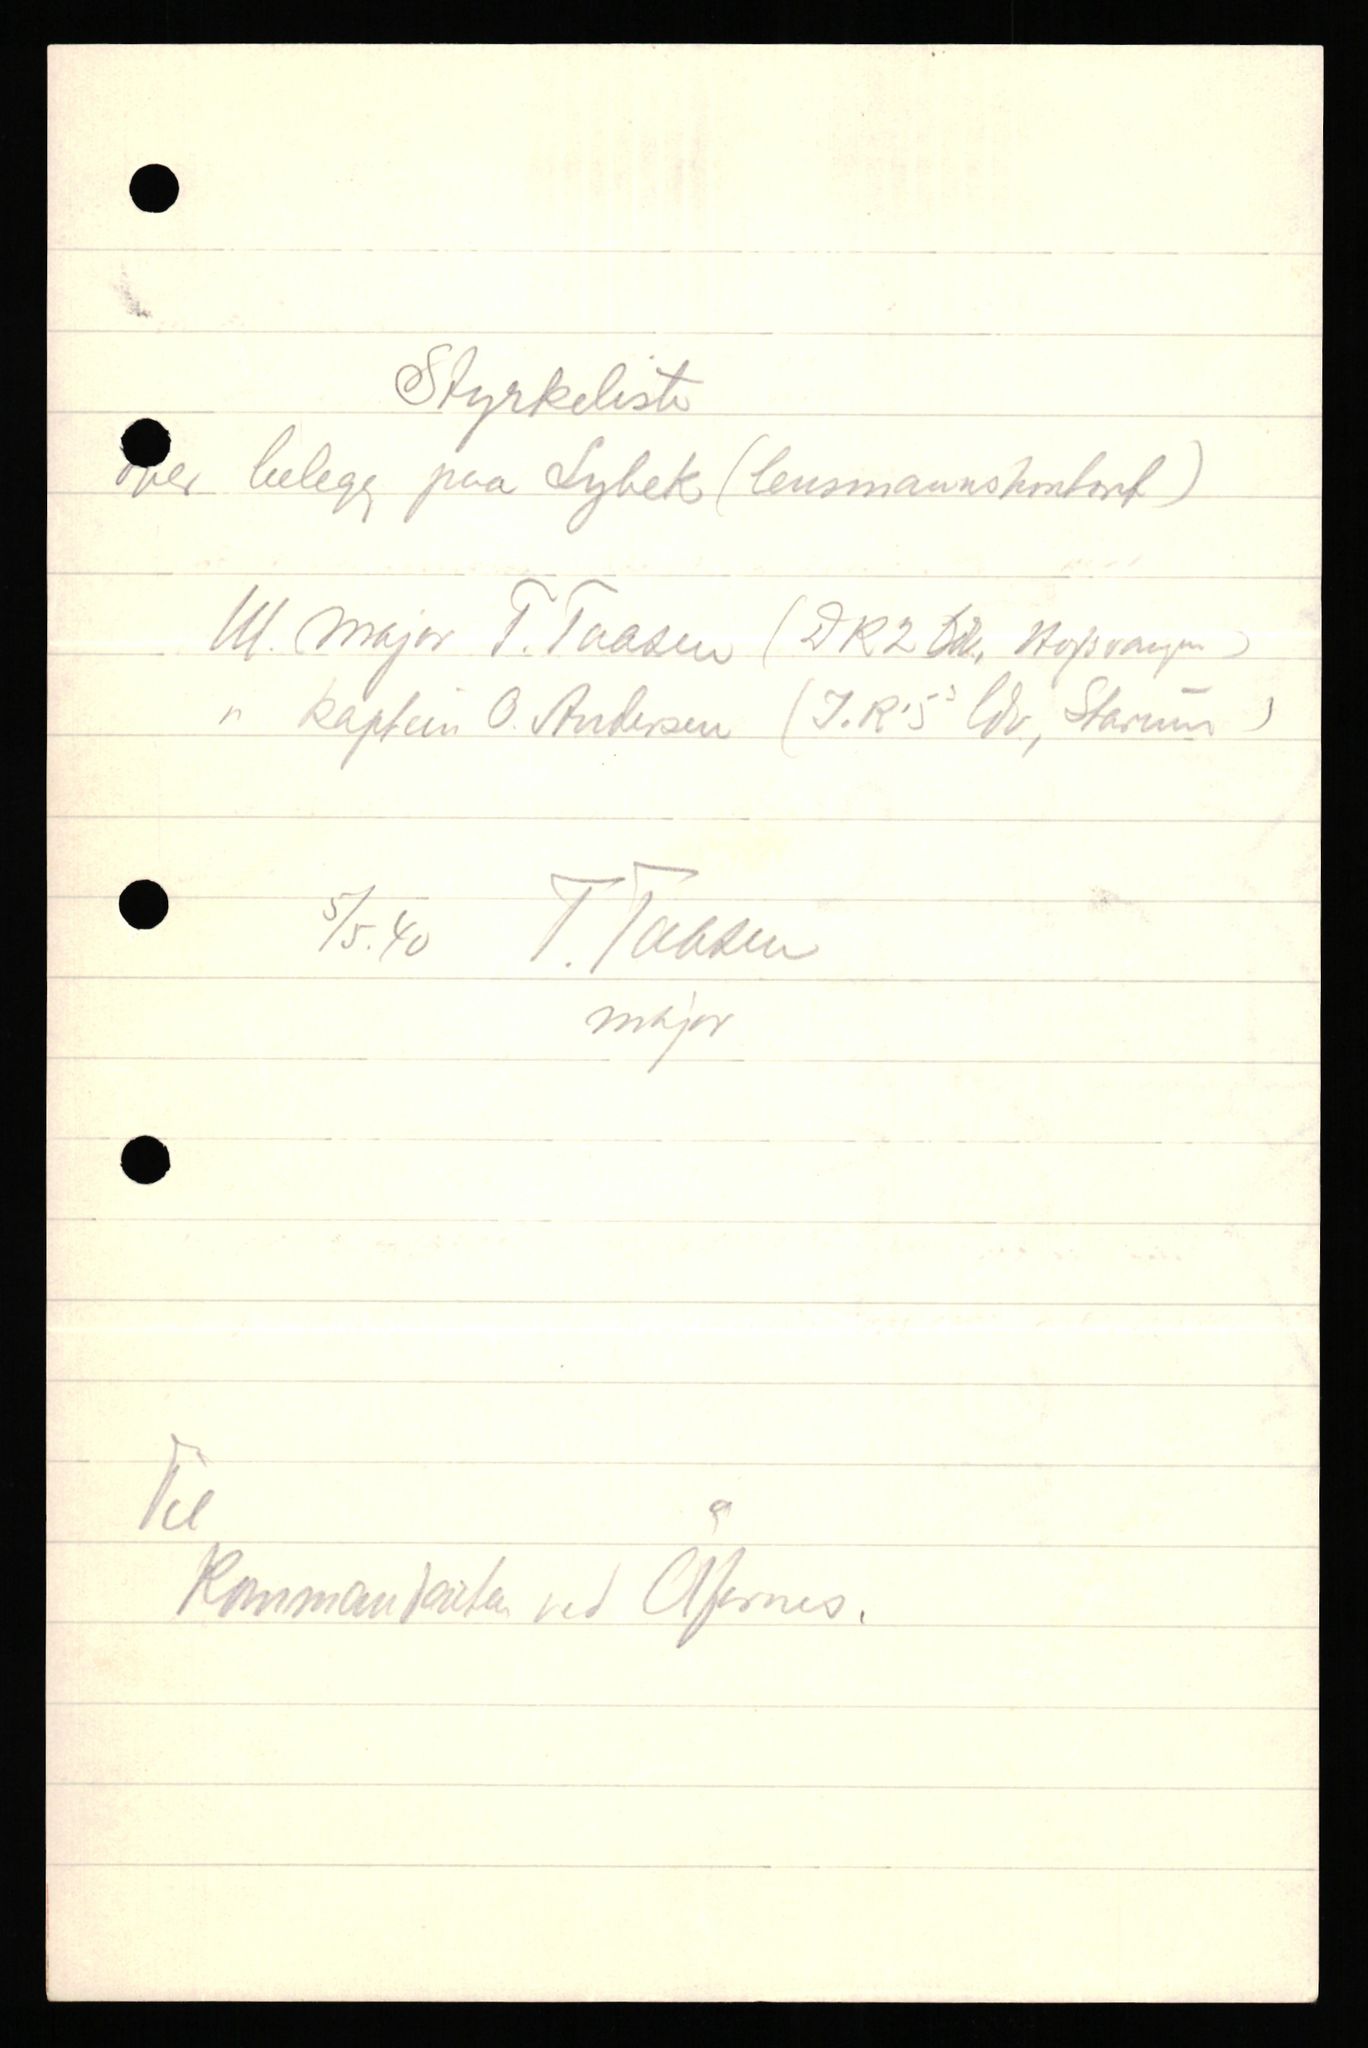 Styrkeliste
over belegg paa Lybek (lensmannskontoret)
major T. Taasen (DR2 Ldv, Hofsvangen)
" kaptein O. Andersen (I.R.5's ldv, Starum)
5/5.40 T. Taasen
major
Til
Kommandanten ved Åfarnes.